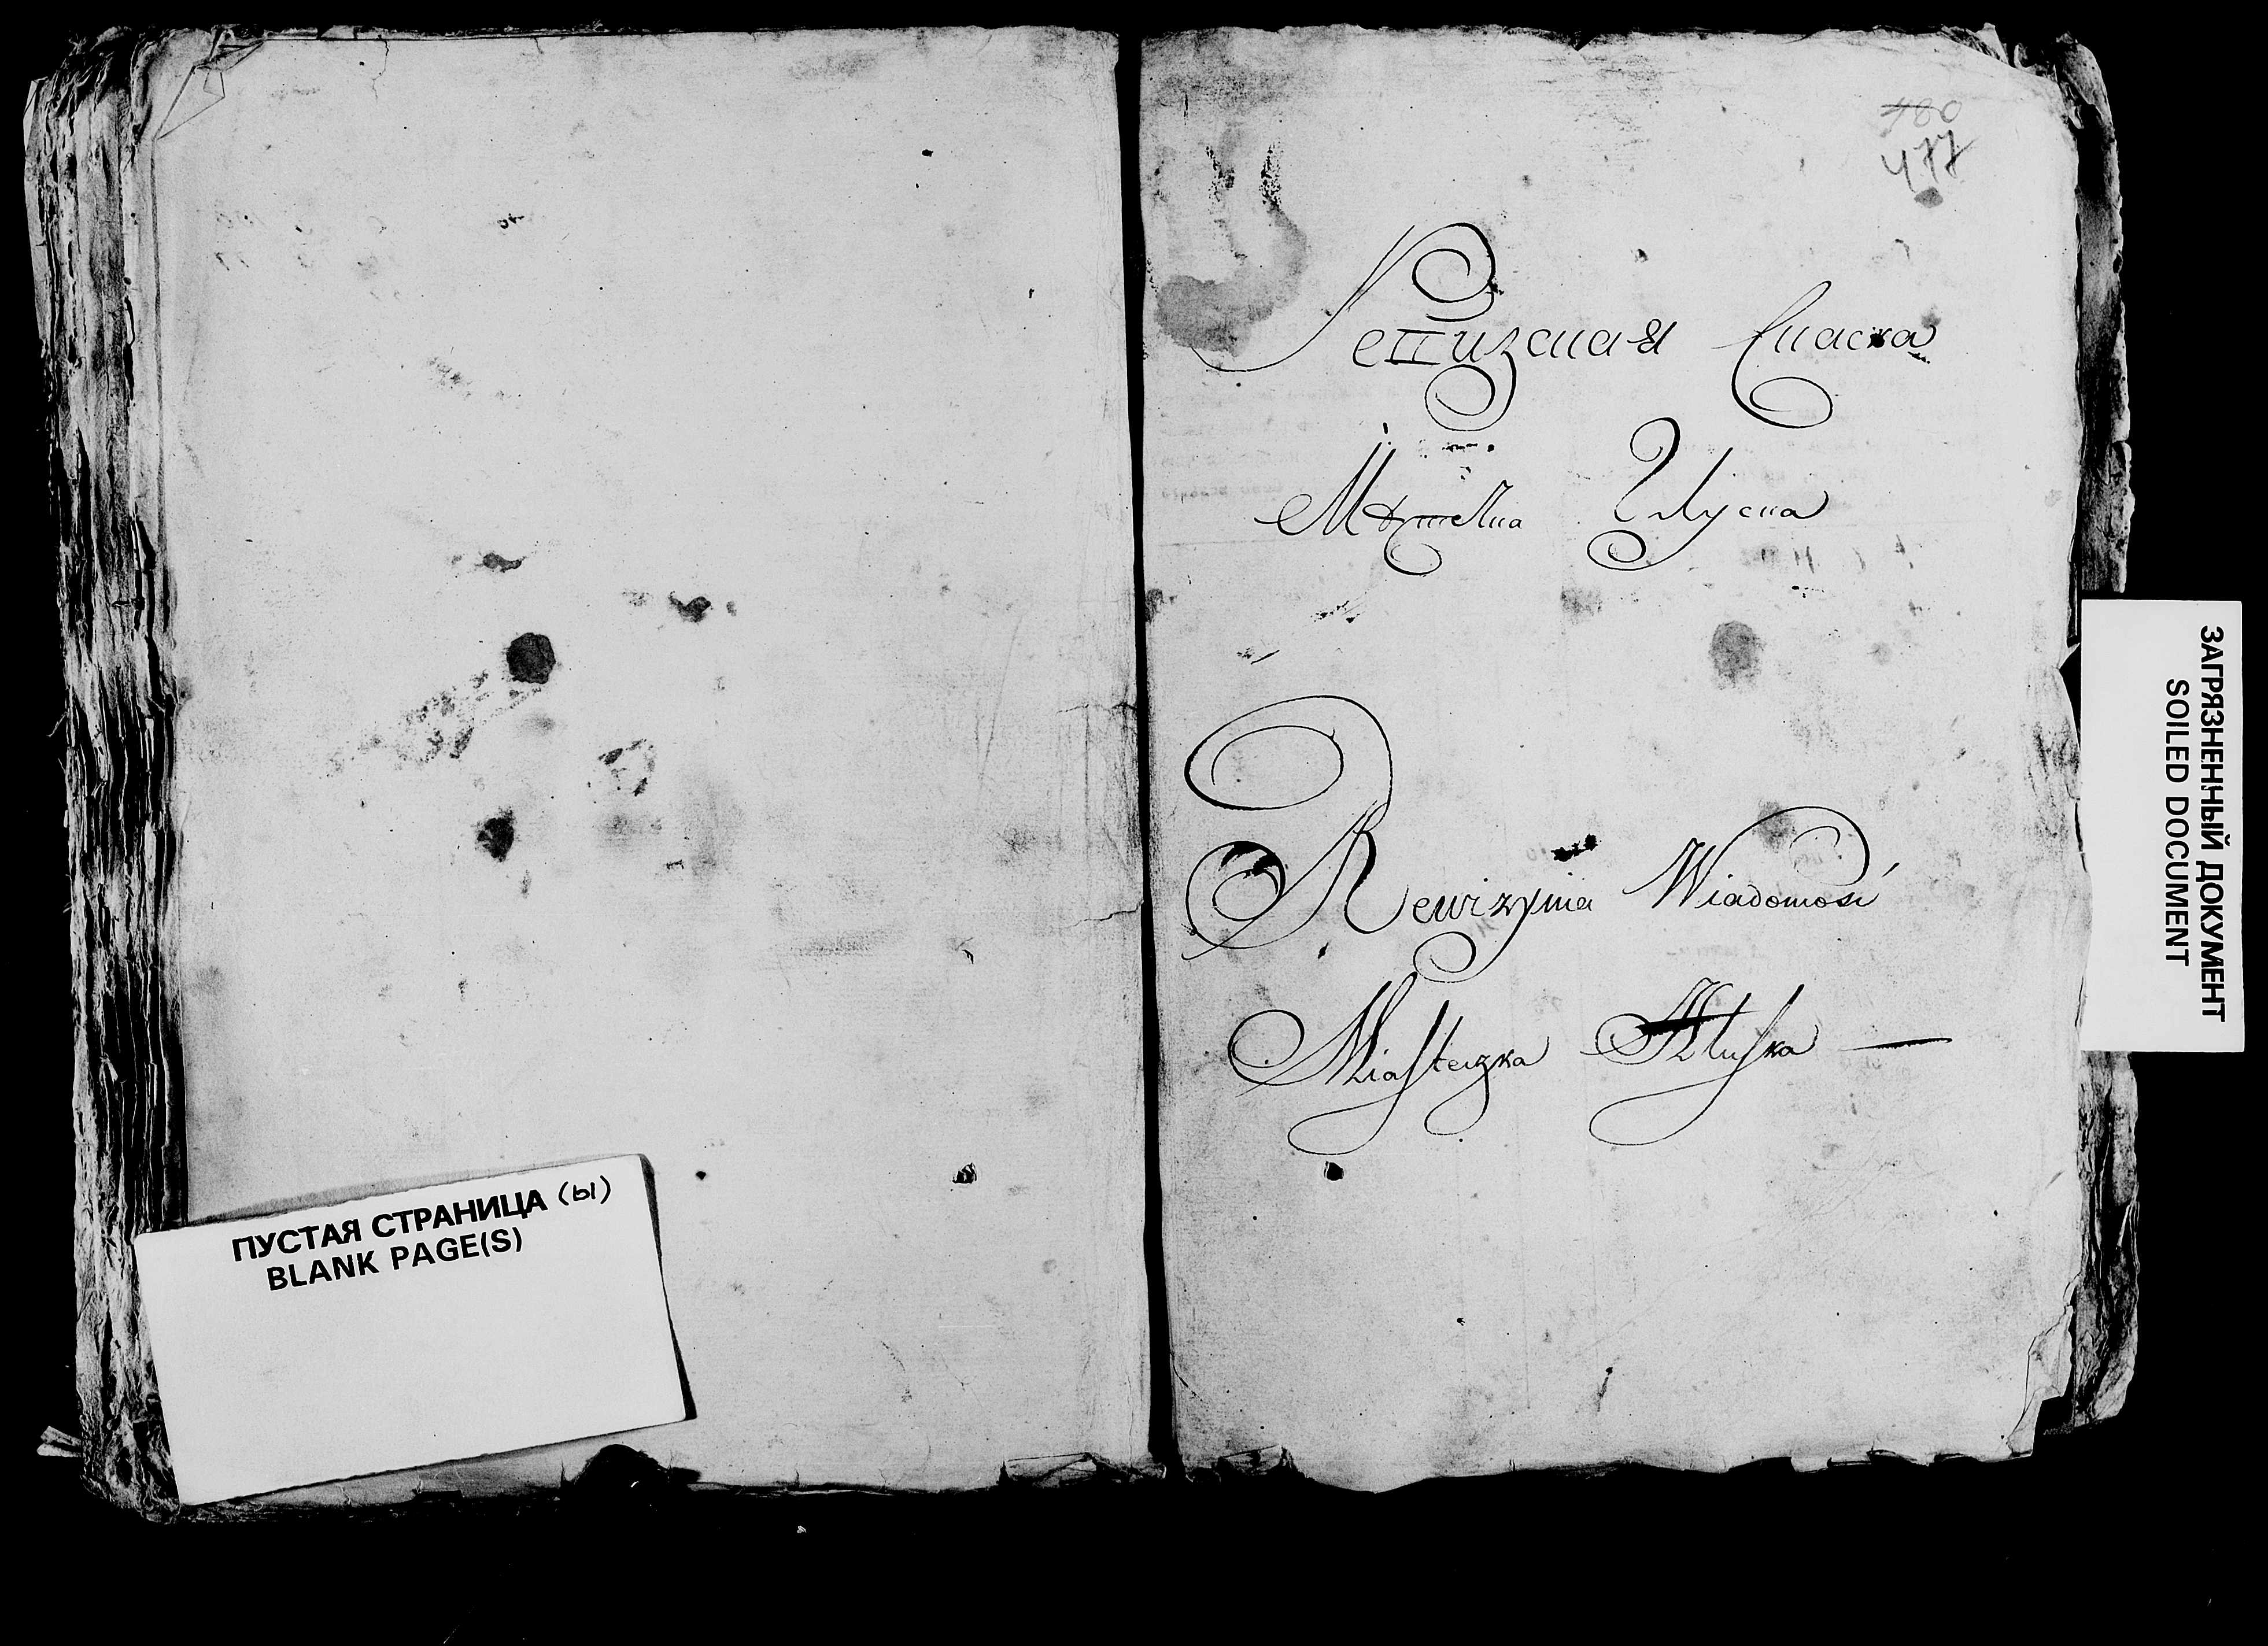 ПУСТАЯ СТРАНИЦА (ы)
BLANK PAGE(S)
480
477
Ревизская Сказка
Rewizyina Wiadomość
Miasteczka
ЗАГРЯЗНЕННЫЙ ДОКУМЕНТ
SOILED DOCUMENT